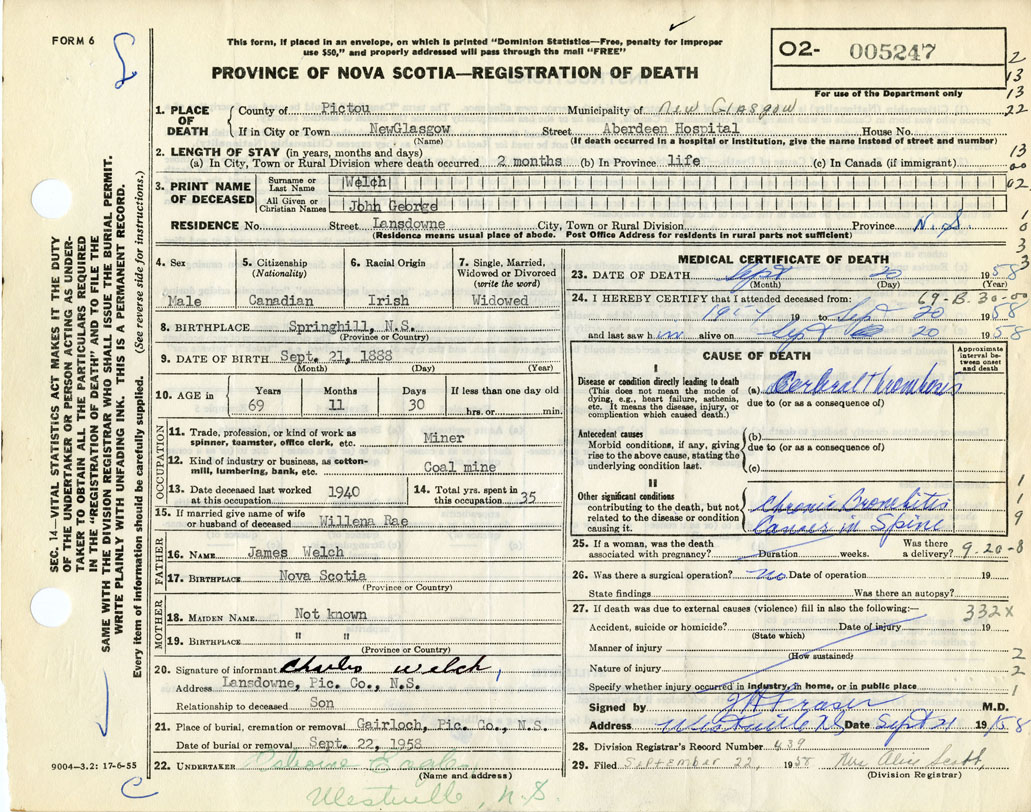 FORM 6
This form, if placed in an envelope, on which is printed "Dominion Statistics—Free, penalty for improper
use $50," and properly addressed will pass through the mail "FREE"
PROVINCE OF NOVA SCOTIA—REGISTRATION OF DEATH
02- 005247
For use of the Department only
1. PLACE OF DEATH
County of Pictou Municipality of New Glasgow
If in City or Town NewGlasgow Street Aberdeen Hospital House No.
(Name) (If death occurred in a hospital or institution, give the name instead of street and number)
2. LENGTH OF STAY (in years, months and days)
(a) In City, Town or Rural Division where death occurred 2 months (b) In Province life (c) In Canada (if immigrant)
3. PRINT NAME OF DECEASED
Surname or Last Name Welch
All Given or Christian Names John George
RESIDENCE No. Street Lansdowne City, Town or Rural Division Province N.S.
(Residence means usual place of abode. Post Office Address for residents in rural parts not sufficient)
4. Sex Male
5. Citizenship (Nationality) Canadian
6. Racial Origin Irish
7. Single, Married, Widowed or Divorced (write the word) Widowed
8. BIRTHPLACE Springhill, N.S.
(Province or Country)
9. DATE OF BIRTH Sept. 21, 1888
(Month) (Day) (Year)
10. AGE in Years 69 Months 11 Days 30 If less than one day old hrs. or min.
OCCUPATION
11. Trade, profession, or kind of work as spinner, teamster, office clerk, etc. Miner
12. Kind of industry or business, as cotton-mill, lumbering, bank, etc. Coal mine
13. Date deceased last worked at this occupation 1940
14. Total yrs. spent in this occupation 35
15. If married give name of wife or husband of deceased Willena Rae
FATHER
16. NAME James Welch
17. BIRTHPLACE Nova Scotia
(Province or Country)
MOTHER
18. MAIDEN NAME Not known
19. BIRTHPLACE " "
(Province or Country)
20. Signature of informant Charles Welch
Address Lansdowne, Pic. Co., N.S.
Relationship to deceased Son
21. Place of burial, cremation or removal Gairloch, Pic. Co., N.S.
Date of burial or removal Sept. 22, 1958
22. UNDERTAKER Eagles
(Name and address)
Westville, N.S.
MEDICAL CERTIFICATE OF DEATH
23. DATE OF DEATH Sept 20 1958
(Month) (Day) (Year)
69-B. 30-00
24. I HEREBY CERTIFY that I attended deceased from:
1957 19 to Sept 20 1958
and last saw him alive on Sept 20 1958
CAUSE OF DEATH
Approximate interval between onset and death
I
Disease or condition directly leading to death
(This does not mean the mode of dying, e.g., heart failure, asthenia, etc. It means the disease, injury, or complication which caused death.)
(a) Cerebral Thrombosis
due to (or as a consequence of)
Antecedent causes
Morbid conditions, if any, giving rise to the above cause, stating the underlying condition last.
(b)
due to (or as a consequence of)
(c)
II
Other significant conditions
contributing to the death, but not related to the disease or condition causing it.
Chronic Bronchitis
Cancer in Spine
25. If a woman, was the death associated with pregnancy? Duration weeks. Was there a delivery? 9.20-8
26. Was there a surgical operation? No Date of operation 19
State findings Was there an autopsy?
27. If death was due to external causes (violence) fill in also the following:— 332X
Accident, suicide or homicide? Date of injury 19
(State which)
Manner of injury
(How sustained)
Nature of injury
Specify whether injury occurred in industry, in home, or in public place
Signed by J H Fraser M.D.
Address Westville NS Date Sept 21 1958
28. Division Registrar's Record Number 439
29. Filed September 22, 1958 Mrs Alice Scott
(Division Registrar)
2
13
13
22
13
00
02
1
0
3
3
1
1
9
2
2
1
SEC. 14—VITAL STATISTICS ACT MAKES IT THE DUTY
OF THE UNDERTAKER OR PERSON ACTING AS UNDER-
TAKER TO OBTAIN ALL THE PARTICULARS REQUIRED
IN THE "REGISTRATION OF DEATH" AND TO FILE THE
SAME WITH THE DIVISION REGISTRAR WHO SHALL ISSUE THE BURIAL PERMIT.
WRITE PLAINLY WITH UNFADING INK. THIS IS A PERMANENT RECORD.
Every item of information should be carefully supplied. (See reverse side for instructions.)
9004—3.2: 17-6-55
C